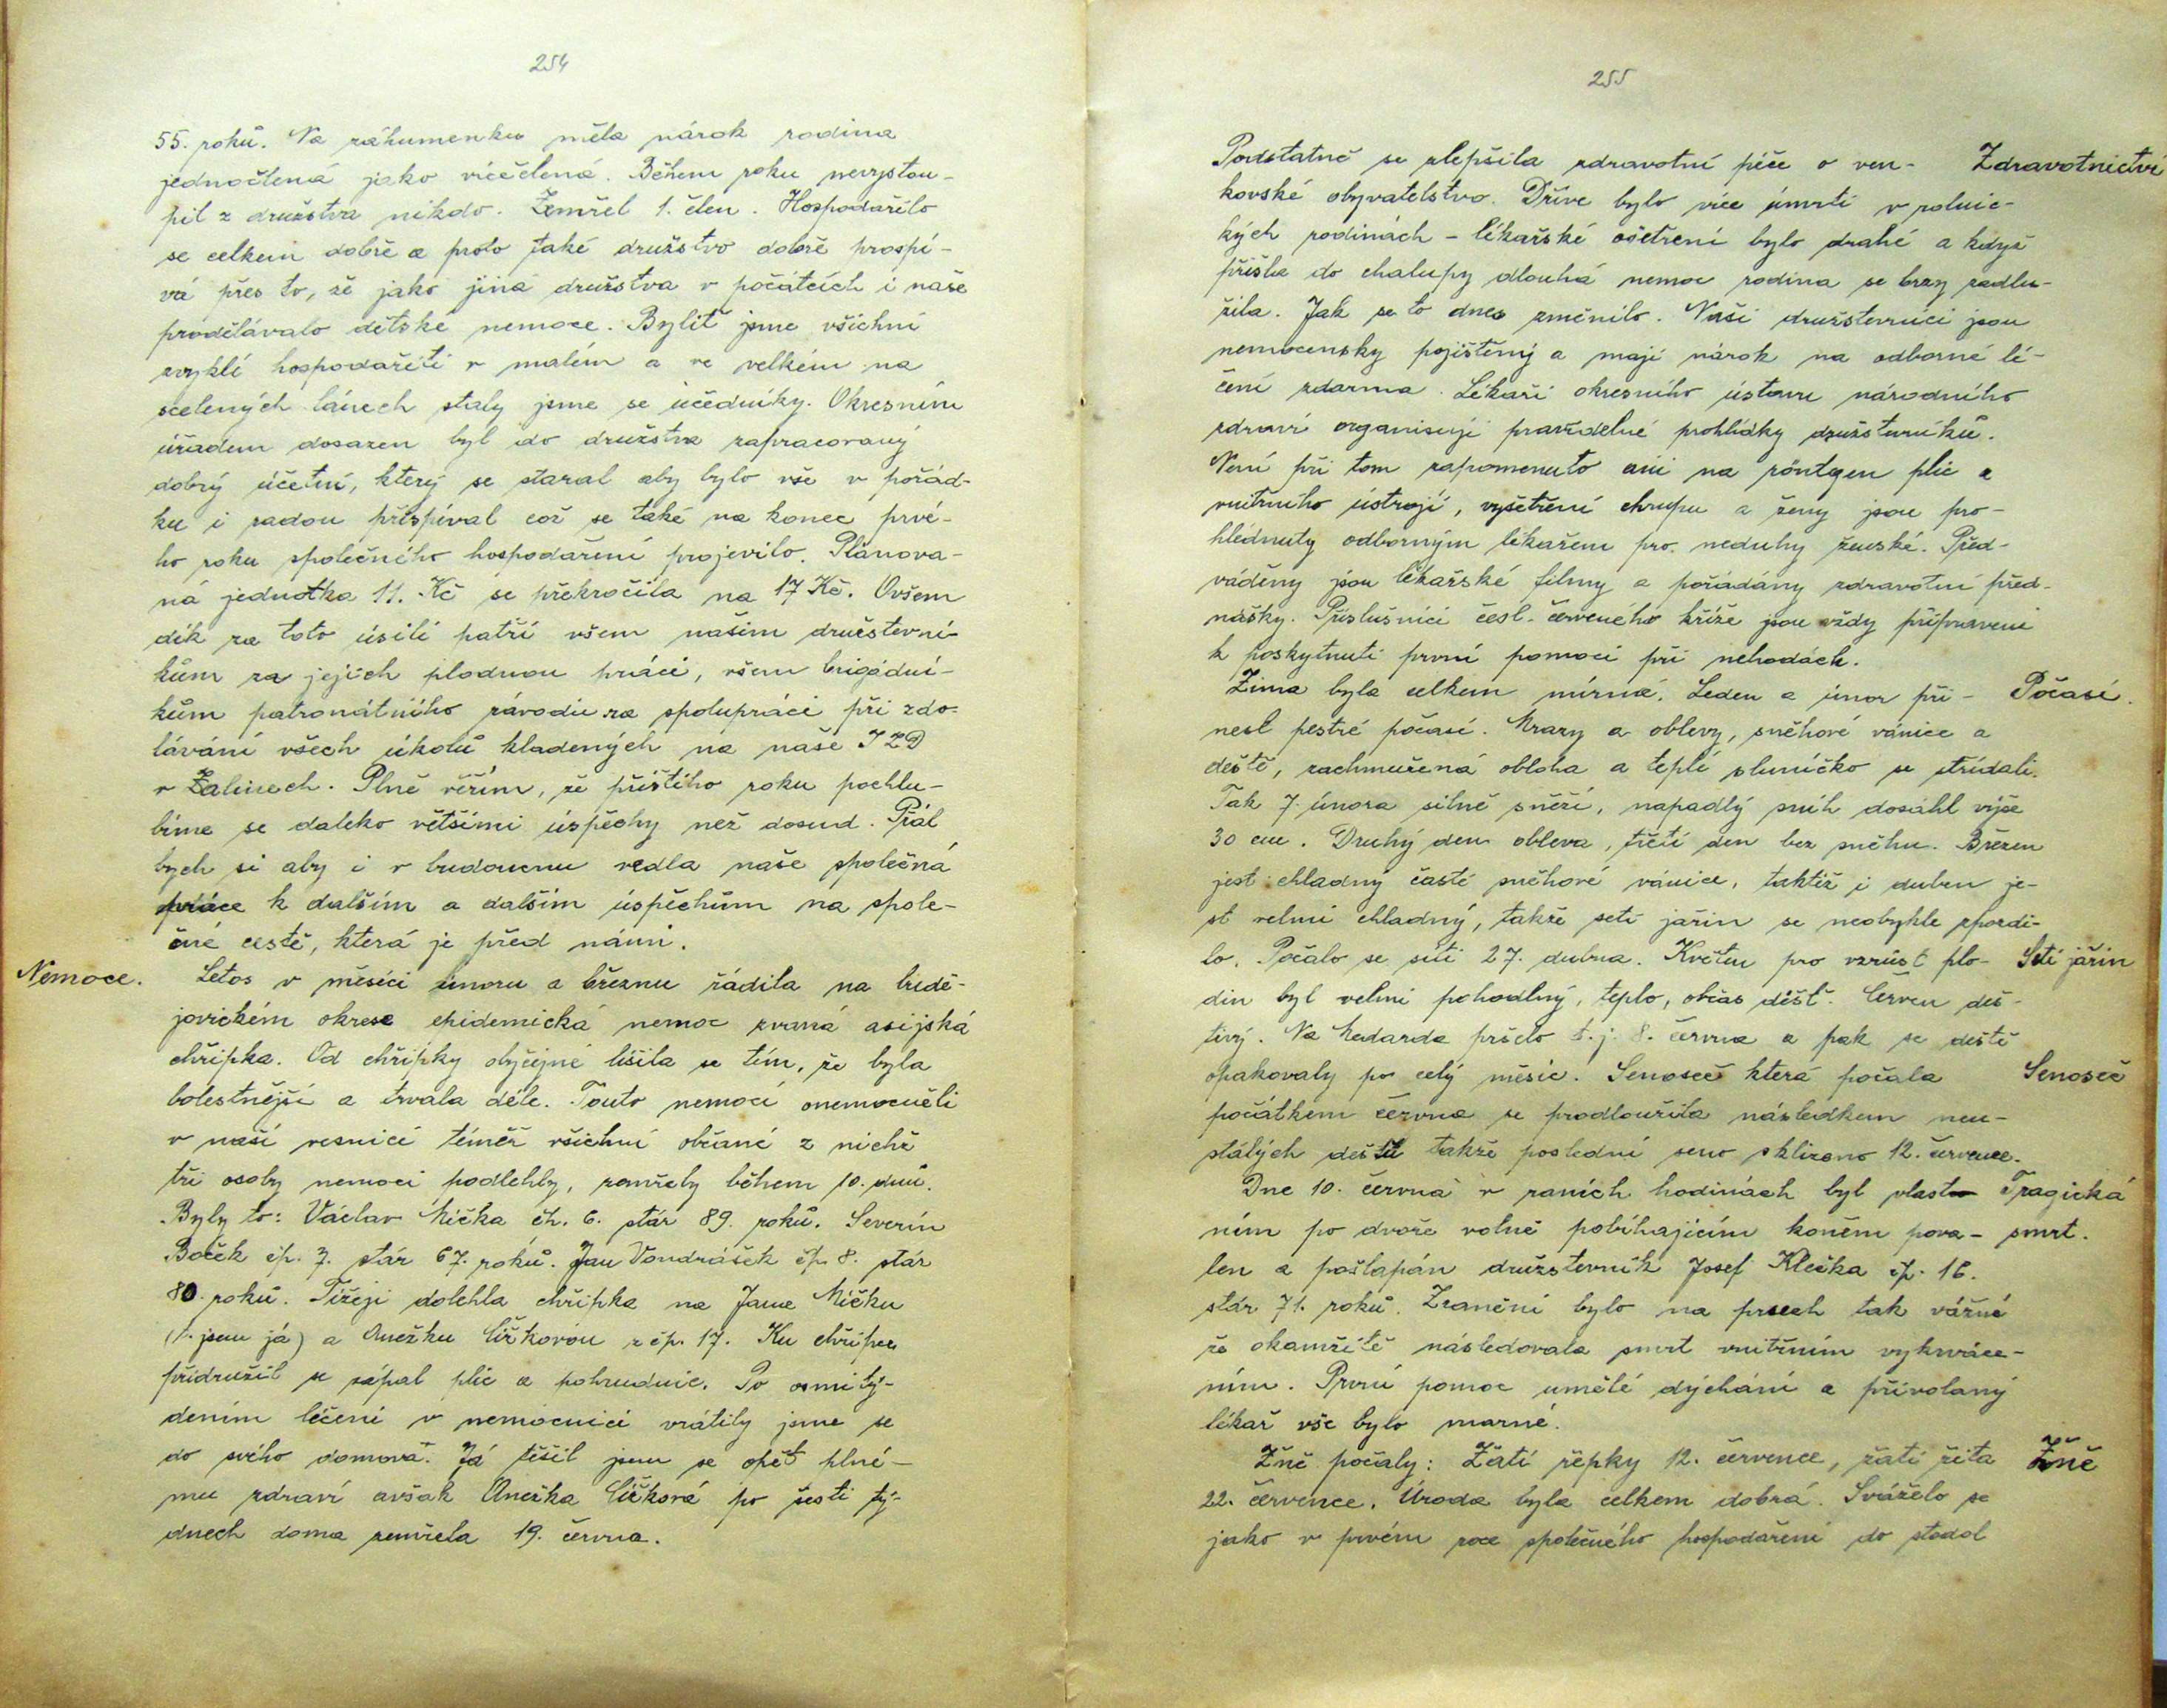 254
55. roků. Na záhumenku měla nárok rodina
jednočlená jako vícečlená. Během roku nevystou-
pil z družstva nikdo. Zemřel 1. člen. Hospodařilo
se celkem dobře a proto také družstvo dobře prospí-
vá přes to, že jako jiná družstva v počátcích i naše
prodělávalo dětské nemoce. Byliť jsme všichni
zvyklí hospodařiti v malém a ve velkém na
scelených lánech staly jsme se učedníky. Okresním
úřadem dosazen byl do družstva zapracovaný
dobrý účetní, který se staral aby bylo vše v pořád-
ku i radou přispíval což se také na konec prvé-
ho roku společného hospodaření projevilo. Plánova-
ná jednotka 11. Kč se překročila na 17 Kč. Ovšem
dík za toto úsilí patří všem našim družstevní-
kům za jejich plodnou práci, všem brigádní-
kům patronátního závodu za spolupráci při zdo-
lávání všech úkolů kladených na naše JZD
v Žalinech. Plně věřím, že příštího roku pochlu-
bíme se daleko většími úspěchy než dosud. Přál
bych si aby i v budoucnu vedla naše společná
práce k dalším a dalším úspěchům na spole-
čné cestě, která je před námi.
Nemoce.
Letos v měsíci únoru a březnu řádila na budě-
jovickém okrese epidemická nemoc zvaná asijská
chřipka. Od chřipky obyčejné lišila se tím, že byla
bolestnější a trvala déle. Touto nemocí onemocněli
v naší vesnici téměř všichni občané z nichž
tři osoby nemoci podlehly, zemřely během 10. dnů.
Byly to: Václav Mička čh. 6. stár 89. roků. Severín
Boček čp. 7. stár 67. roků. Jan Vondrášek čp. 8. stár
80. roků. Tížeji dolehla chřipka na Jana Mičku
(t. jsem já) a Anežku Čížkovou z čp. 17. Ku chřipce
přidružil se zápal plic a pohrudnic. Po osmi tý-
dením léčení v nemocnici vrátily jsme se
do svého domova. Já těšil jsem se opět plné-
mu zdraví avšak Anežka Čížková po šesti tý-
dnech doma zemřela 19. června.
255
Podstatně se zlepšila zdravotní péče o ven-
Zdravotnictví
kovské obyvatelstvo. Dříve bylo více úmrtí v rolnic-
kých rodinách - lékařské ošetření bylo drahé a když
přišla do chalupy dlouhá nemoc rodina se brzy zadlu-
žila. Jak se to dnes změnilo. Naši družstevníci jsou
nemocensky pojištěný a mají nárok na odborné lé-
čení zdarma. Lékaři okresního ústavu národního
zdraví organisují pravidelné prohlídky družstevníků.
Není při tom zapomenuto ani na röntgen plic a
vnitřního ústrojí, vyšetření chrupu a ženy jsou pro-
hlédnuty odborným lékařem pro neduhy ženské. Před-
váděny jsou lékařské filmy a pořádány zdravotní před-
nášky. Příslušníci česl. červeného kříže jsou vždy připraveni
k poskytnutí první pomoci při nehodách.
Zima byla celkem mírná. Leden a únor při-
Počasí.
nesl pestré počasí. Mrazy a oblevy, sněhové vánice a
deště, zachmuřená obloha a teplé sluníčko se střídali.
Tak 7. února silně sněží, napadlý sníh dosáhl výše
30 cm. Druhý den obleva, třetí den bez sněhu. Březen
jest chladný časté sněhové vánice, taktéž i duben je-
st velmi chladný, takže setí jařin se neobykle zpozdi-
lo. Počalo se síti 27. dubna. Květen pro vzrůst plo-
Setí jařin
din byl velmi pohodlný, teplo, občas déšť. Červen deš-
tivý. Na Medarda pršelo t.j. 8. června a pak se deště
opakovaly po celý měsíc. Senoseč která počala
Senoseč
počátkem června se prodloužila následkem neu-
stálých dešťů takže poslední seno sklizeno 12. července.
Dne 10. června v raních hodinách byl vlast
Tragická
ním po dvoře volně pobíhajícím koněm pova-
smrt.
len a pošlapán družstevník Josef Klečka čp. 16.
stár 71. roků. Zranění bylo na prsech tak vážné
že okamžitě následovala smrt vnitřním vykrváce-
ním. První pomoc umělé dýchání a přivolaný
lékař vše bylo marné.
Žně počaly: Žatí řepky 12. července, žatí žita
Žně
22. července. Úroda byla celkem dobrá. Sváželo se
jako v prvém roce společného hospodaření do stodol